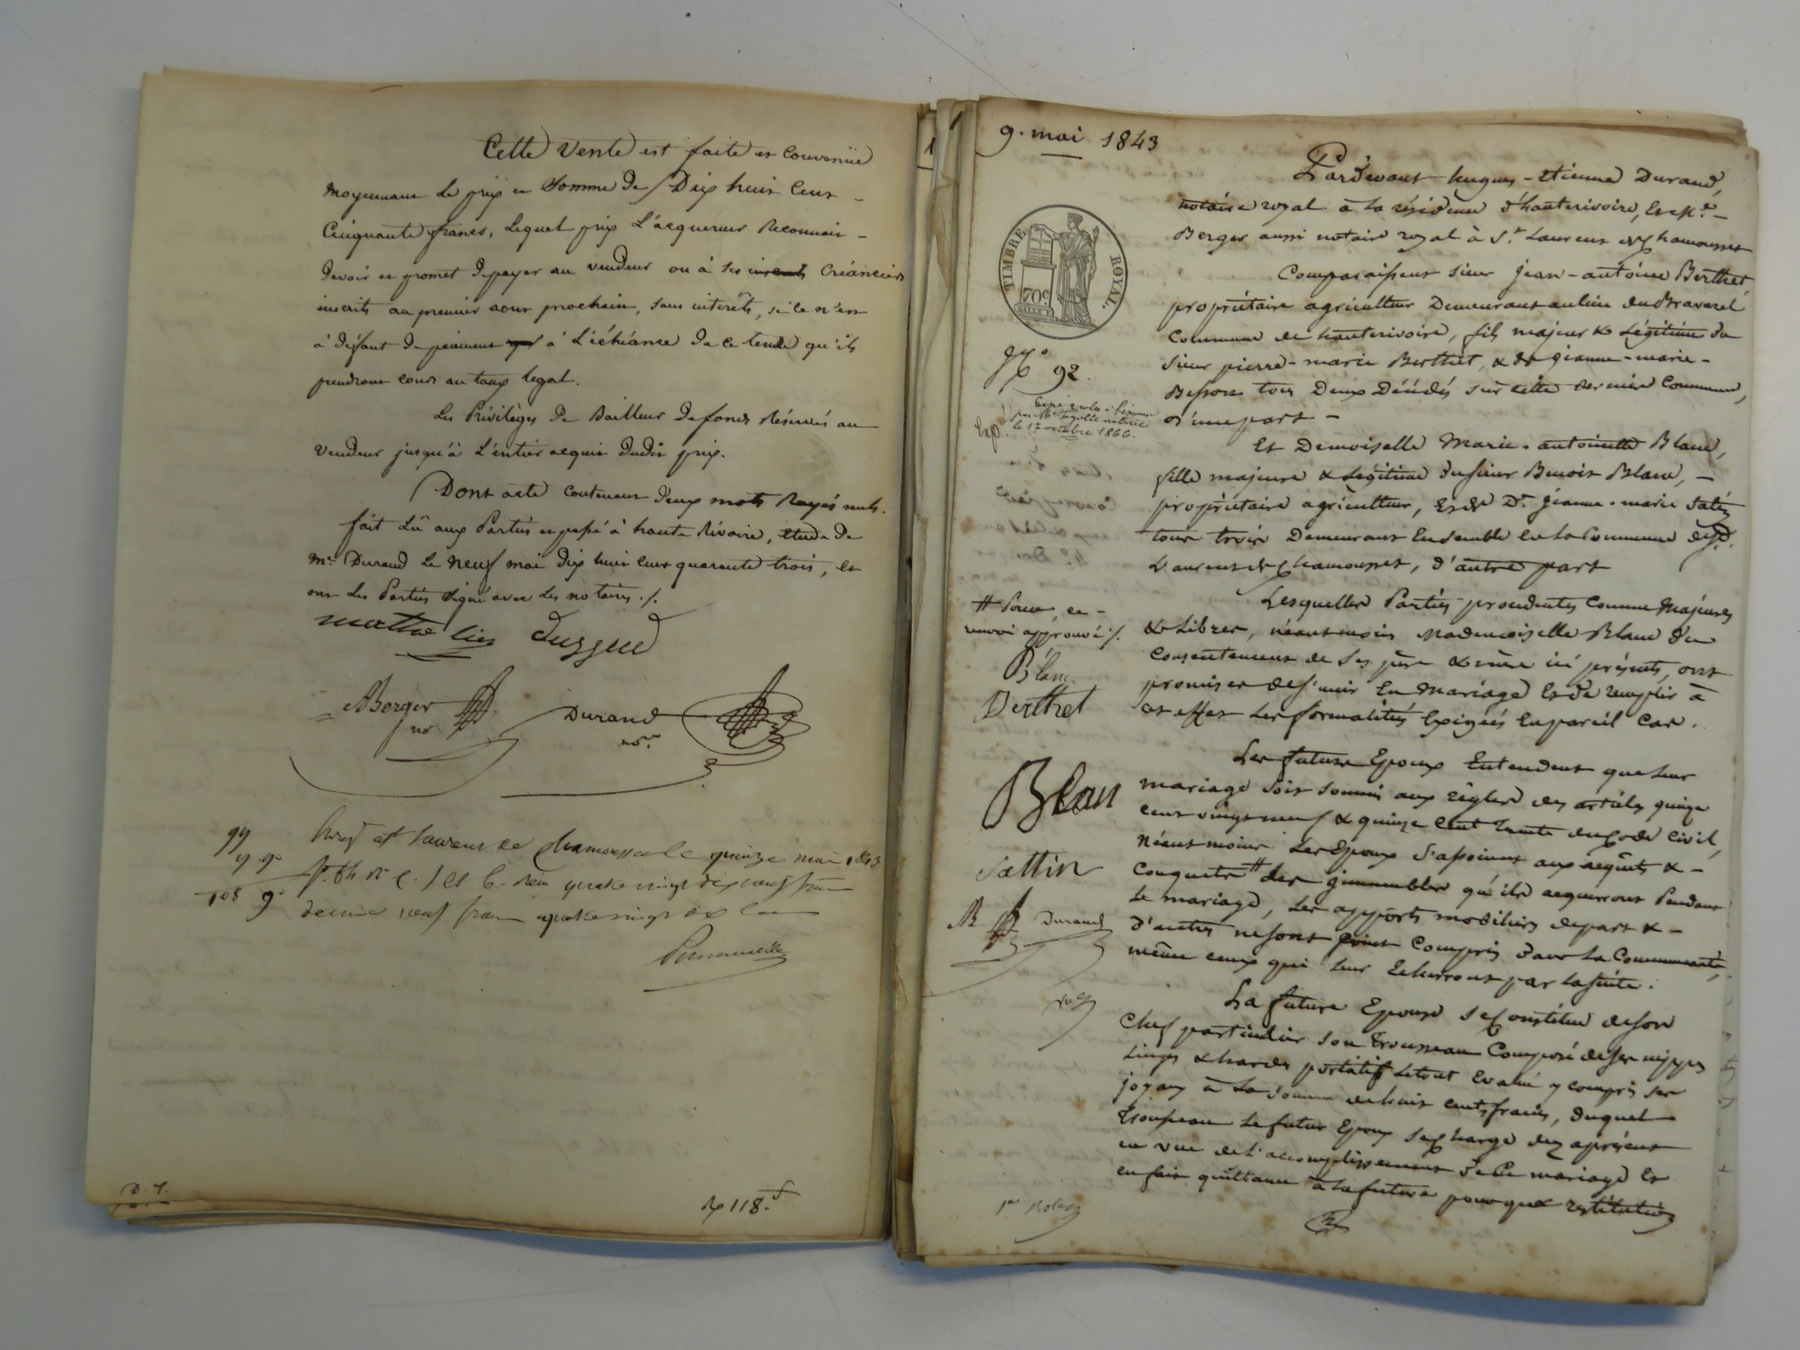 Cette Vente est faite et Convenüe
moyennant le prix et Somme de Dix huit Cent
Cinquante francs, Lequel prix L'acquereur Reconnoit
devoir et promet de payer au vendeur ou à ses Créanciers
inscrits au premier aout prochain, sans intérêts, si ce n'est
à défaut de paiement à L'échéance de ce terme qu'ils
prendront cours au taux legal.
Les Privilèges de Bailleur de fonds Réservés au
vendeur jusqu'à L'entier acquit dudit prix.
Dont acte Contenant deux mots Rayés nuls.
fait Lû aux Parties et passé à haute Rivoire, étude de
Me. Durand Le neuf mai dix huit cent quarante trois, et
ont les Parties Signé avec Les notaires ./.
Berger
nore
Durand
nore.
99
9 90
108 9c
Enregt at St Laurent de Chamousset le quinze mai 1843
quatre vingt dix neuf francs
decime neuf francs quatre vingt dix
D. T.
Rp 118. f
9. mai 1843
Pardevant hugues-etienne Durand,
notaire royal à la résidence d'hauterivoire, Et Me.
Berger aussi notaire royal à St. Laurent de Chamousset
TIMBRE ROYAL.
70c
Comparaissent sieur Jean-antoine Berthet
propriétaire agriculteur Demeurant au lieu du Bravarel
Commune de hauterivoire, fils majeur & Légitime du
Sieur pierre-marie Berthet, & de jeanne-marie
Besson tous Deux Décédés sur cette dernière Commune,
d'une part
No 92.
Expé
le 17 octobre 1866.
Expé.
Et Demoiselle Marie-antoinette Blanc,
fille majeure & Légitime du sieur Benoit Blanc,
propriétaire agriculteur, Et de De. jeanne-marie
tous trois Demeurant Ensemble en la Commune de St.
Laurent de Chamousset, d'autre part
Lesquelles Parties procedantes Comme Majeures
& Libres, néantmoins Mademoiselle Blanc du
Consentement de Ses père & mère ici présents, ont
promis et de s'unir En Mariage, Et de remplir à
cet effet Les formalités Exigées En pareil Cas.
renvoi approuvé ./.
Blanc
Berthet
Blan
Sattin
B
Durand
Les future Epoux Entendent que leur
mariage soit soumis aux règles des articles quinze
cent vingt neuf & quinze Cent trente du Code Civil,
Néant moins Les Epoux S'associent aux acquets &
Conquets # des jmmeubles qu'ils acquerront Pendant
Le mariage, Les apports mobiliers de part &
d'autres ne sont point Compris dans La Communauté,
même ceux qui leur Echerront par la suite.
La future Epouse se Constitue de son
Chef particulier Son Trousseau Composé de ses nippes
Linges & hardes portatifs Le tout Evalué y compris ses
joyaux à La Somme de huit cents francs, duquel
Trousseau Le futur Epoux se Charge dez apresent
en vue de L'accomplissement de Ce mariage Et
en fait quittance à La future pour que restitution